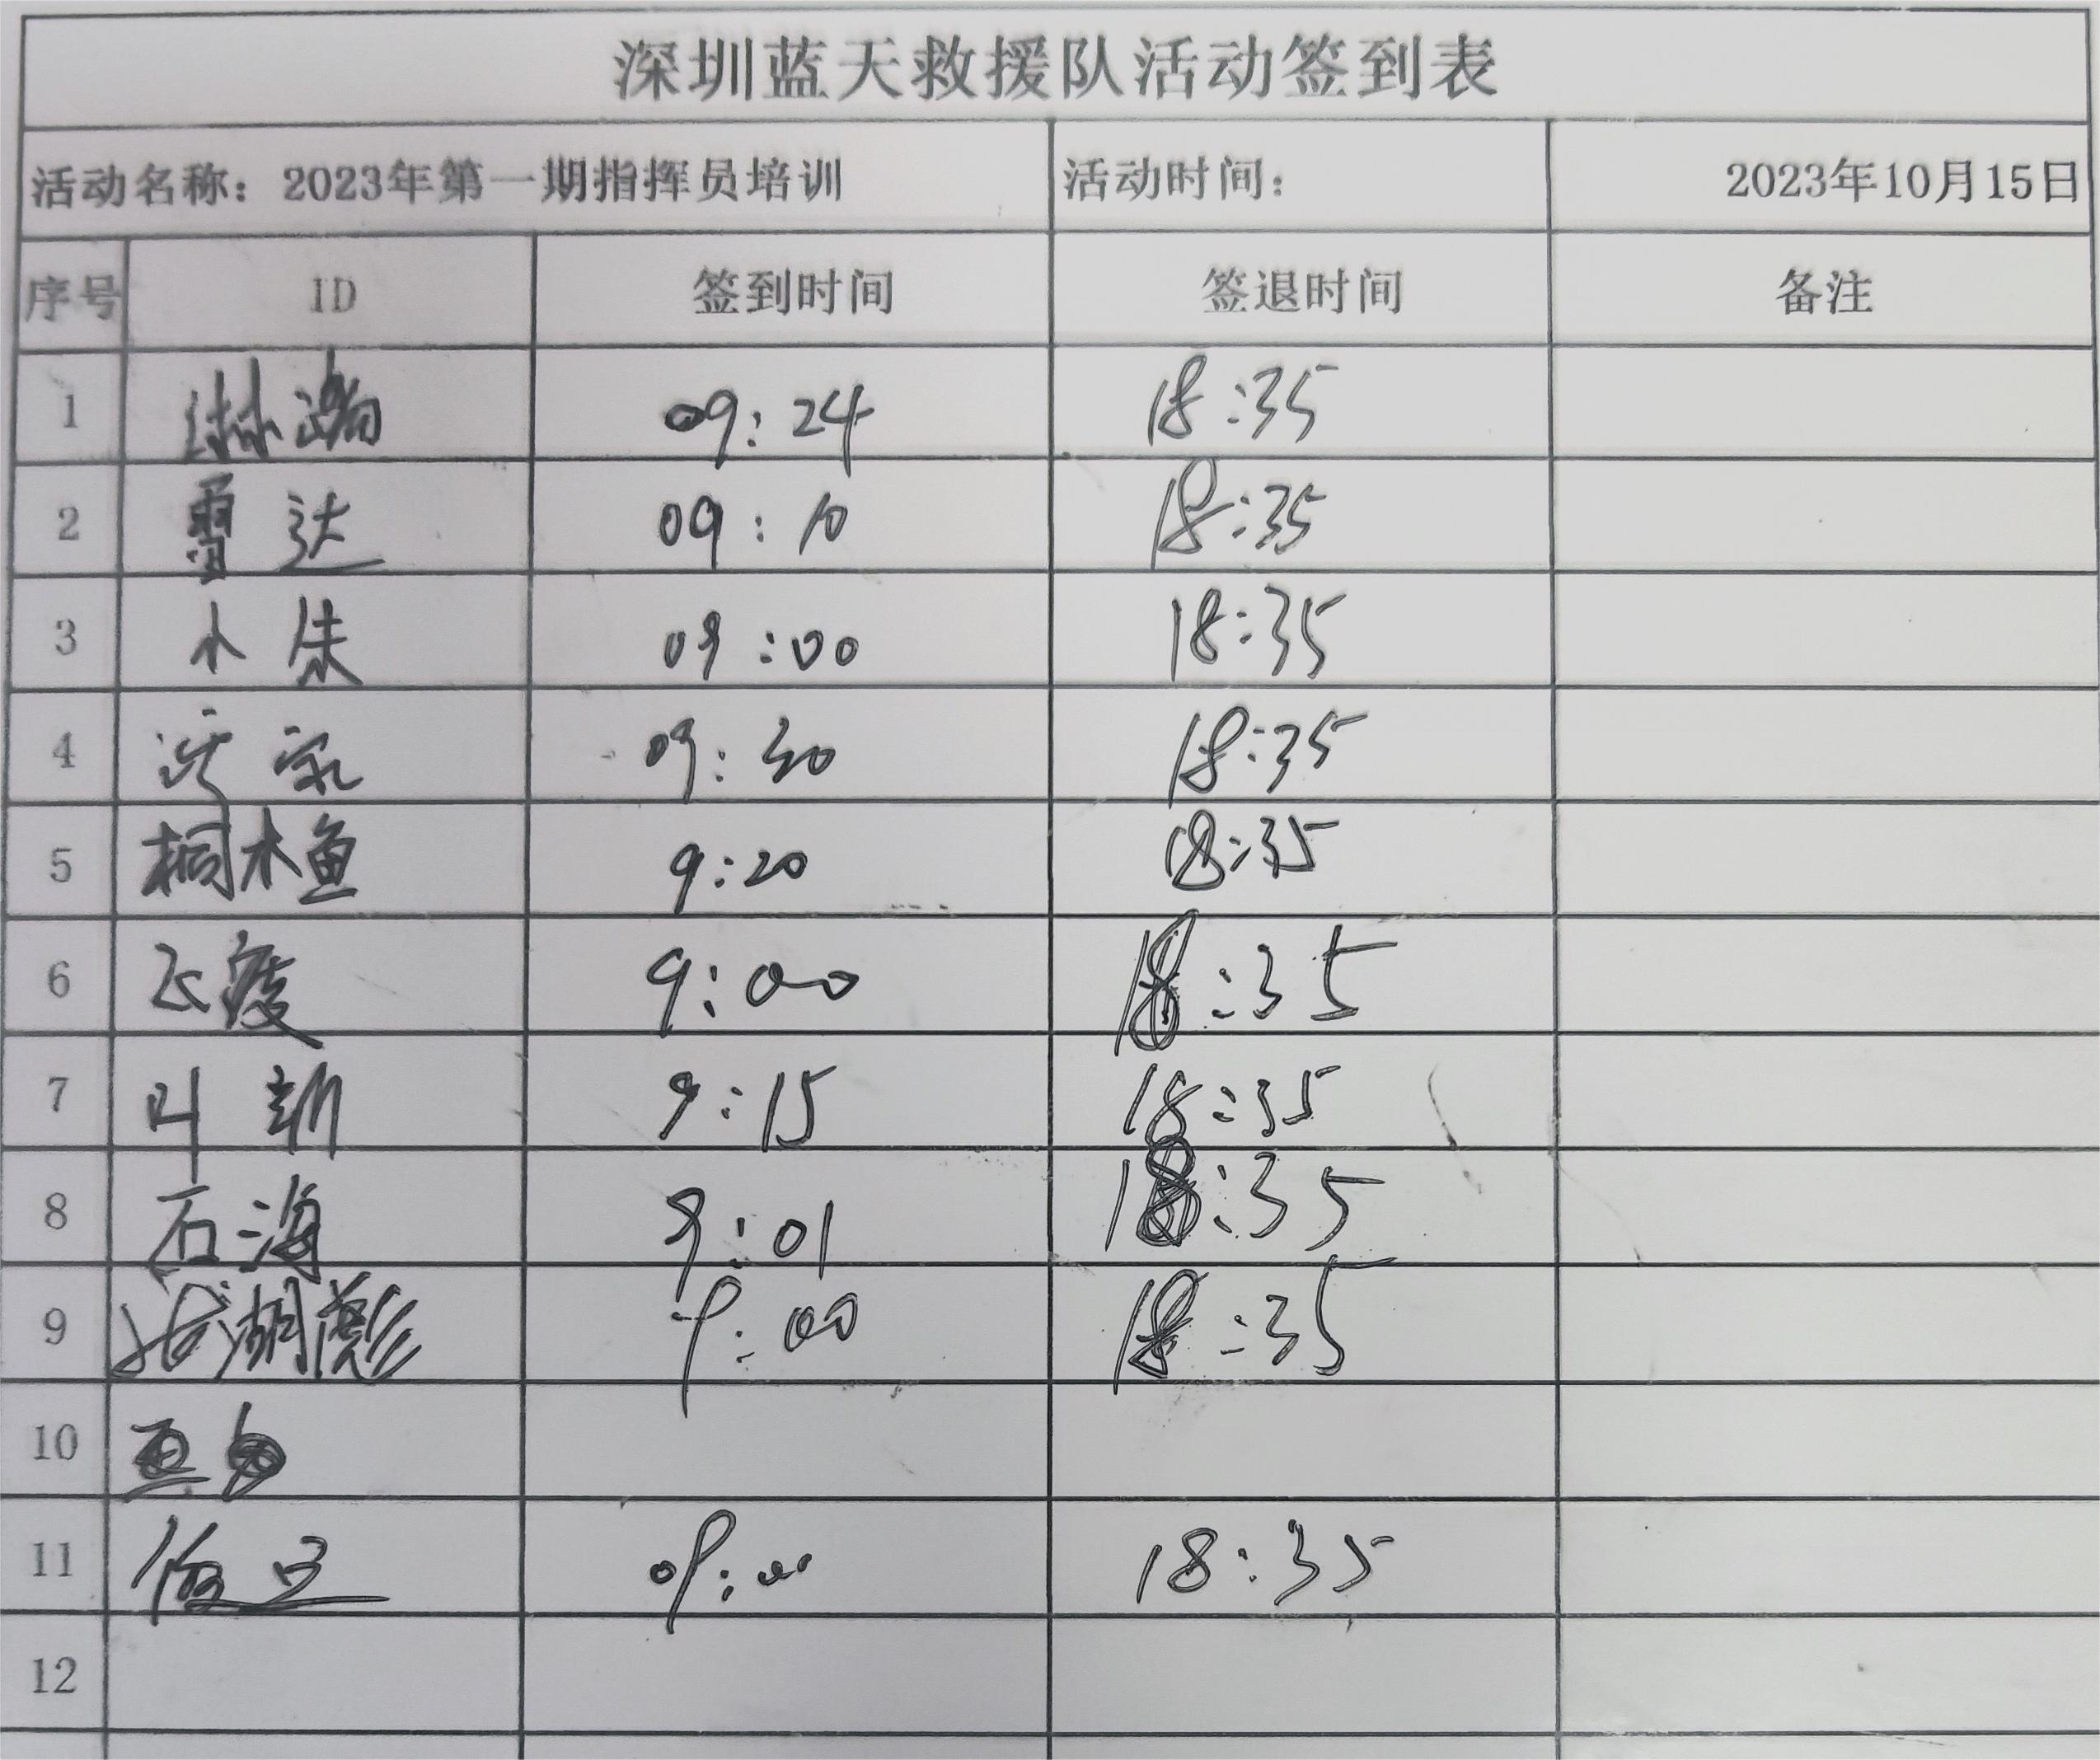 深圳蓝天救援队活动签到表
活动名称：2023年第一期指挥员培训 活动时间： 2023年10月15日
序号 ID 签到时间 签退时间 备注
1 09:24 18:35
2 雷达 09:10 18:35
3 小朱 09:00 18:35
4 09:30 18:35
5 桐木鱼 9:20 18:35
6 飞度 9:00 18:35
7 叶新 9:15 18:35
8 石海 9:01 18:35
9 9:00 18:35
10
11 09:00 18:35
12